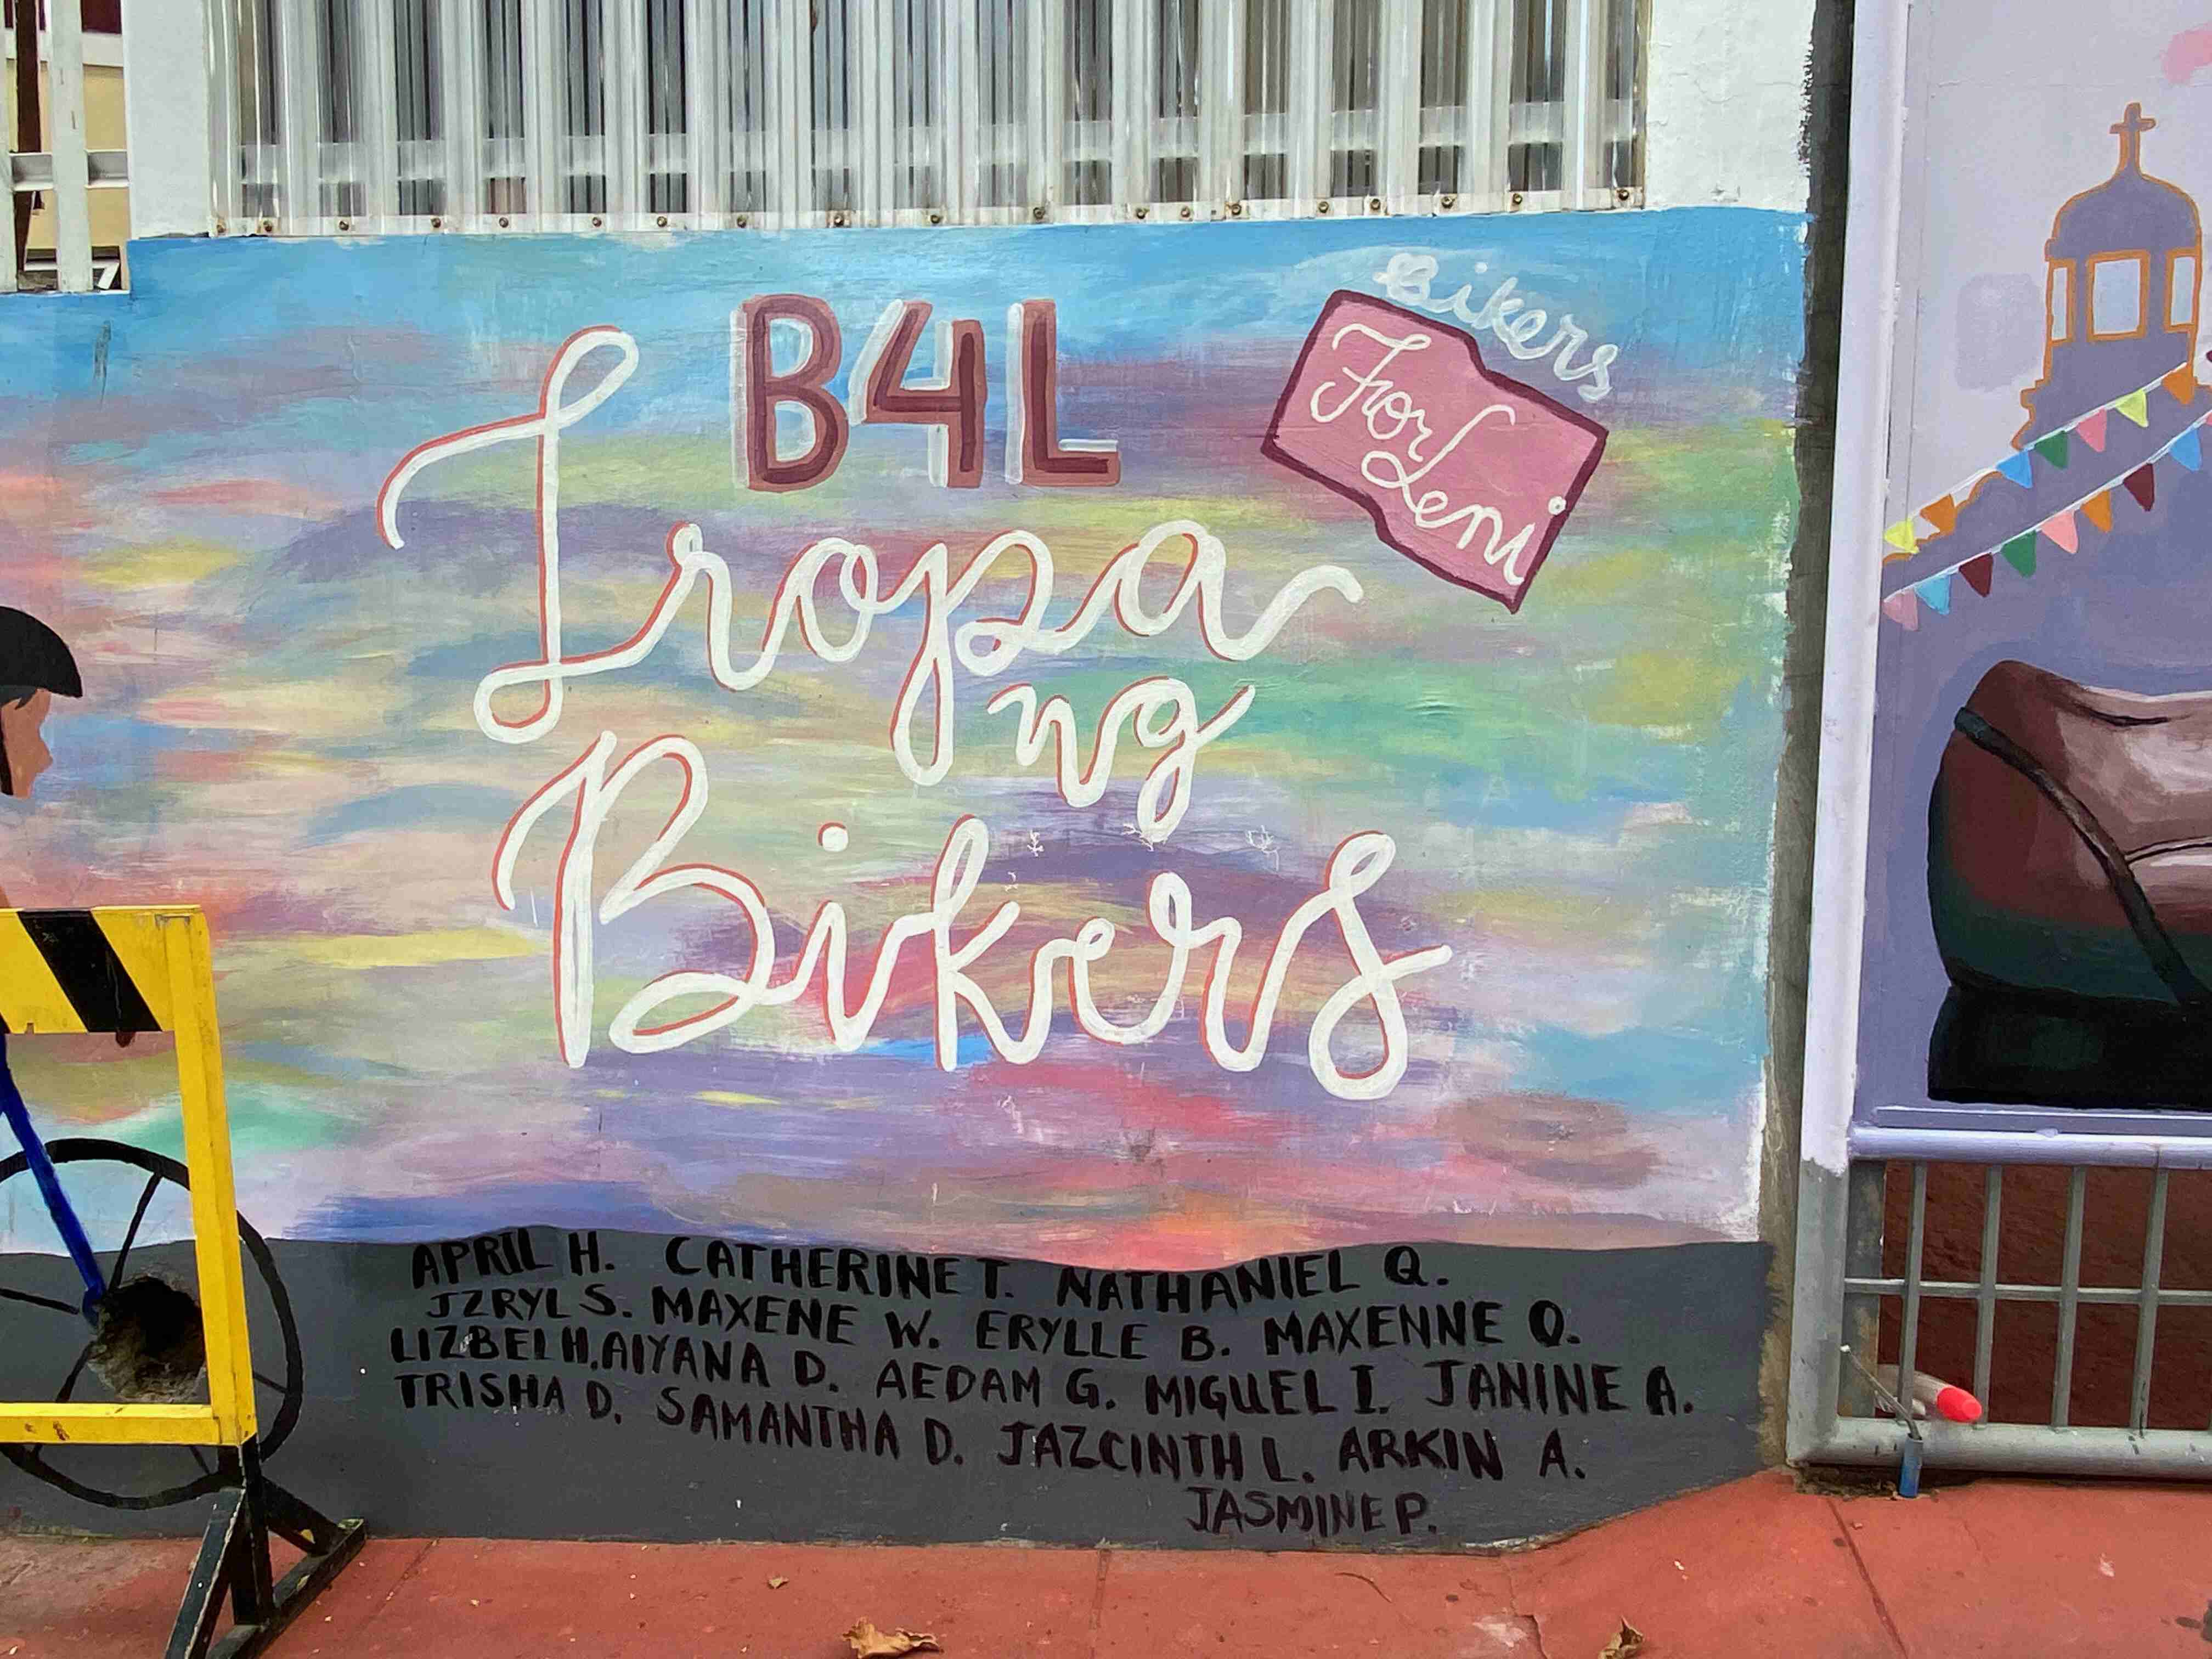 B4L
Tropa
ng
Bikers
Bikers
For Leni
APRIL H. CATHERINE T. NATHANIEL Q.
JZRYL S. MAXENE W. ERYLLE B. MAXENNE O.
LIZBEL H. AIYANA D. AEDAM G. MIGUEL I. JANINE A.
TRISHA D. SAMANTHA D. JAZCINTH L. ARKIN A.
JASMINE P.